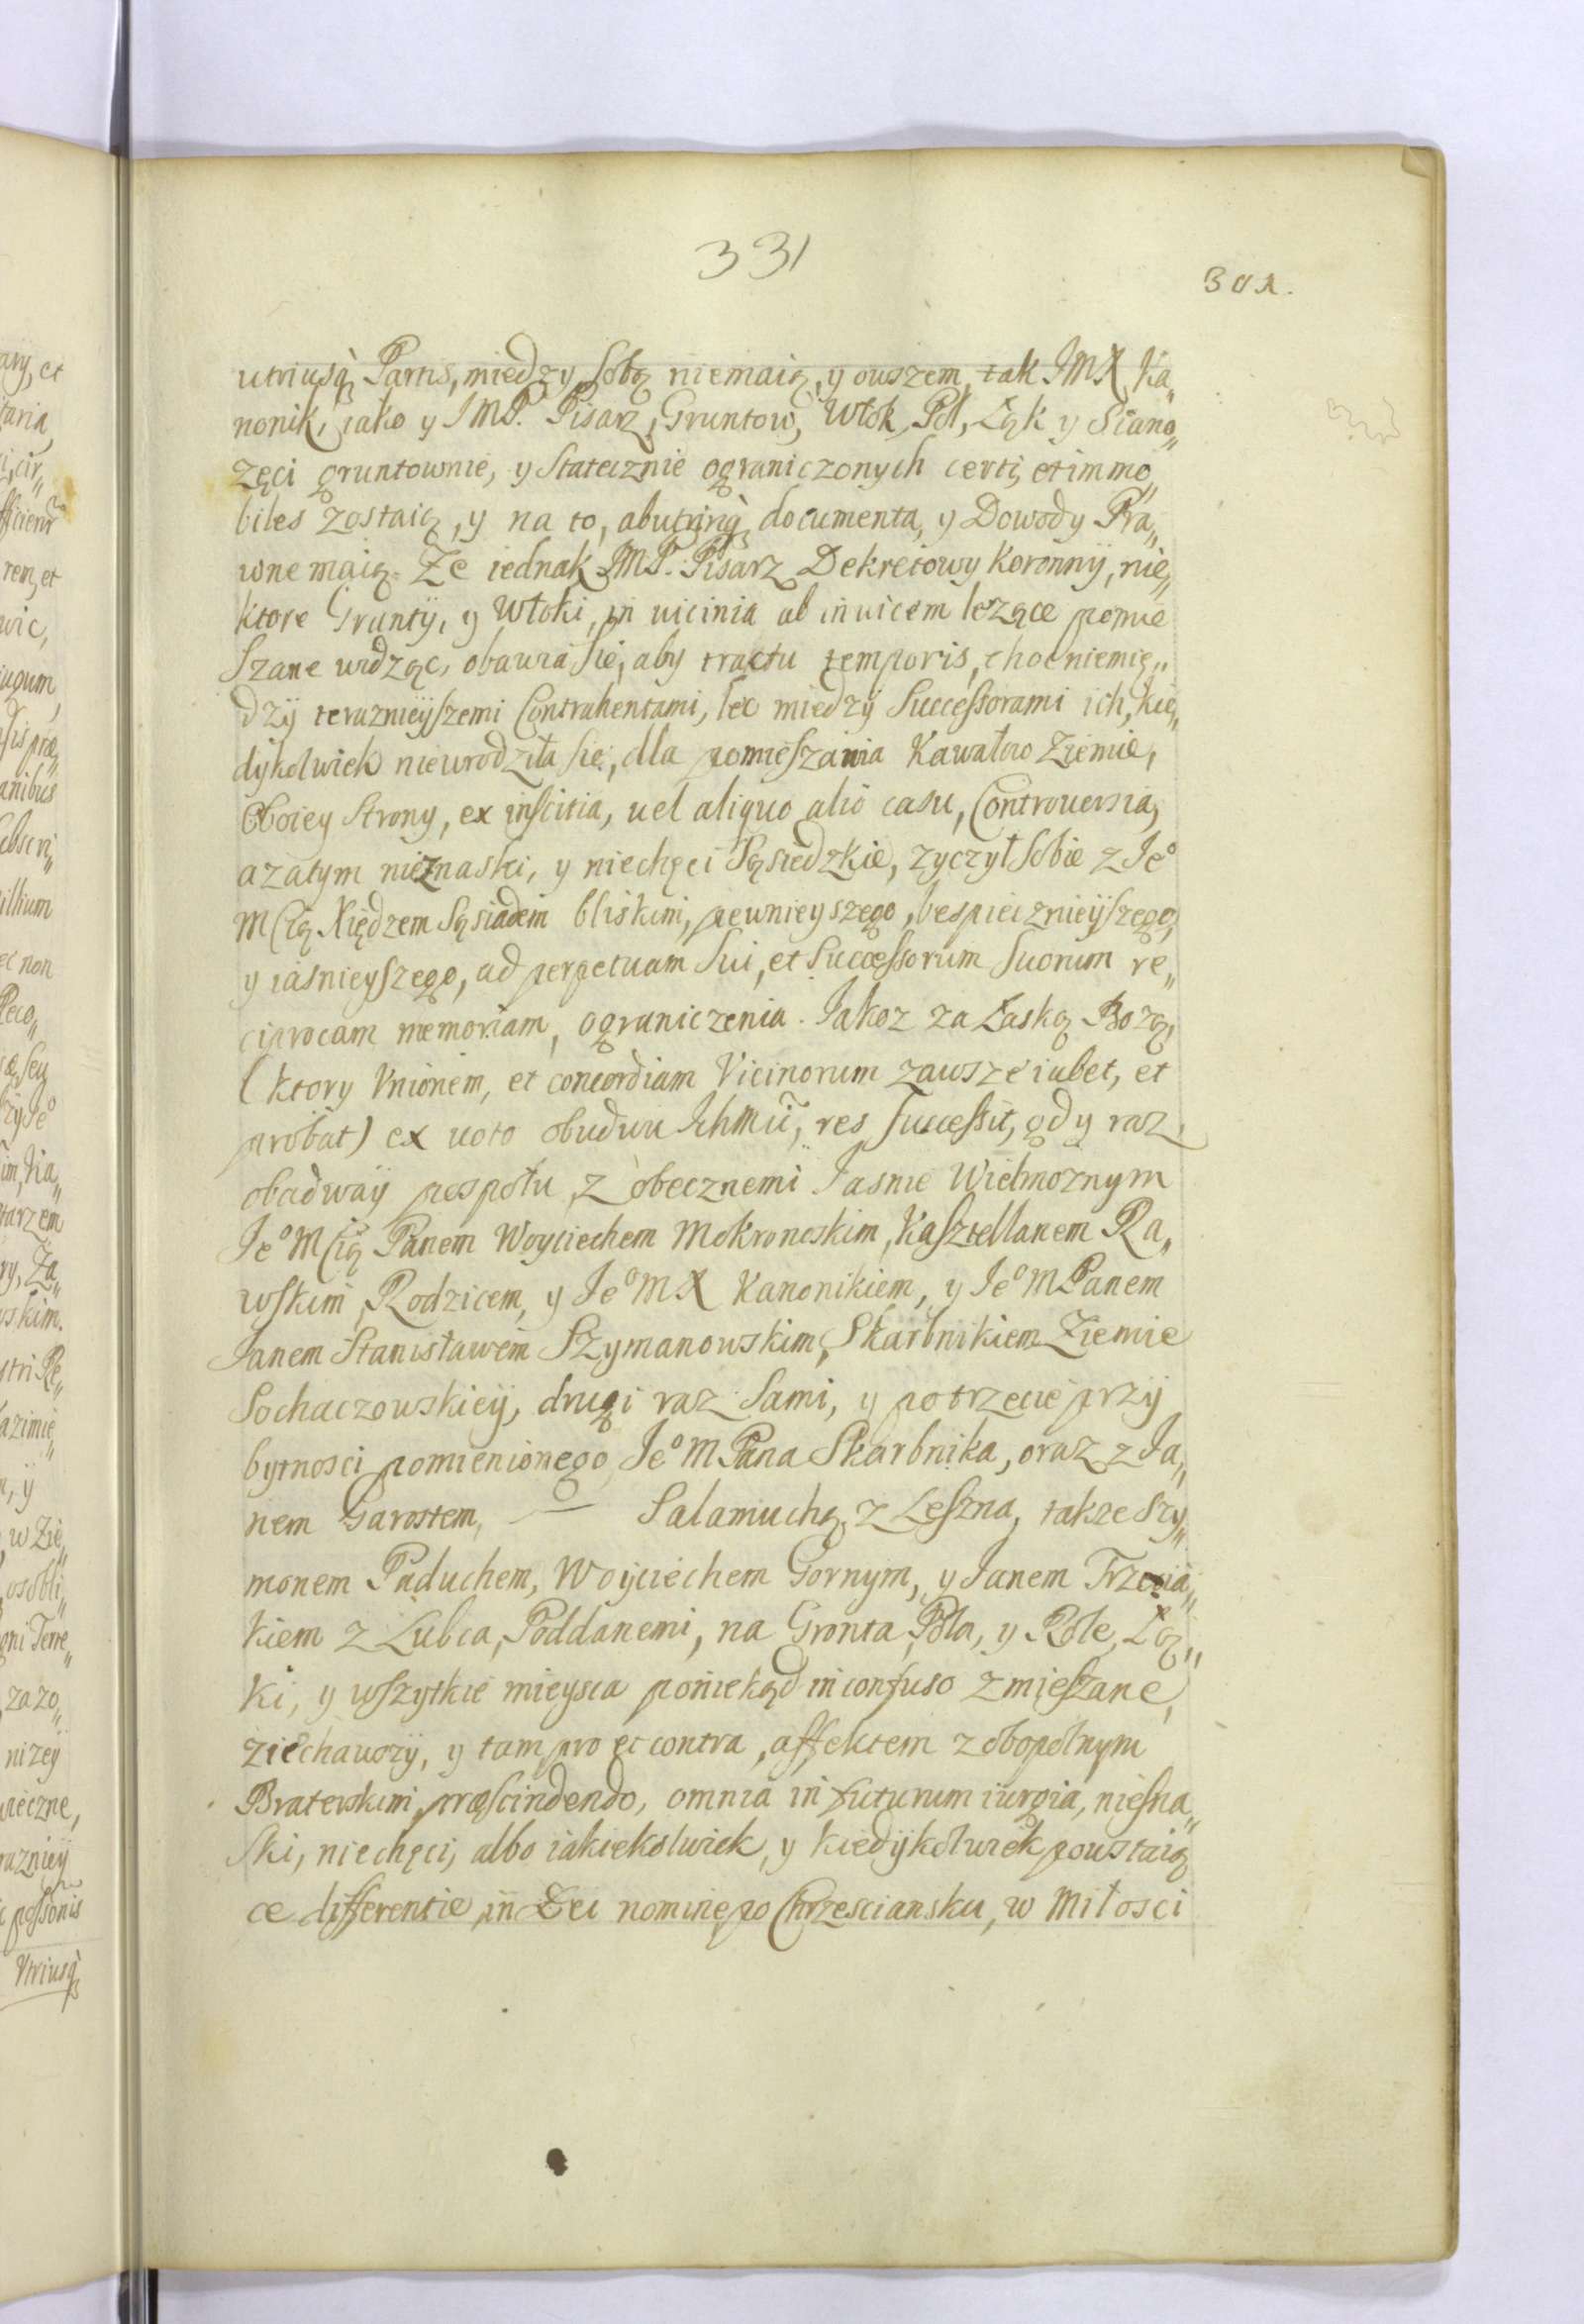 331
301.
utriusq̀ Partis, miedzy Sobą niemaią, y owszem, tak JMX Ka„
nonik, iako y JMP. Pisarz, Gruntow, Włok, Pol, Łąk y Siano„
zęci gruntownie, y Statecznie ograniczonych certi, et immo„
biles zostaią, y na to, abutrinq̀ documenta, y Dowody Pra„
wne maią. Ze iednak JMP. Pisarz Dekretowy Koronnÿ, nie„
ktore Gruntÿ, y Włoki, in uicinia ab inuicem lezące pomie
Szane widząc, obawia Sie, aby tractu temporis, choc niemię„
dzÿ teraznieÿszemi Contrahentami, lec miedzÿ Successorami ich, kie„
dykolwiek nieurodziła sie, dla pomieszania Kawałow Ziemie,
Oboiey Strony, ex inscitia, uel aliquo alio casu, Controuersia,
azatym nieznaski, y niechęci Sąsiedzkie, zyczył Sobie z Jeº
Mcią Xiędzem Sąsiadem bliskim, pewnieyszego, bespiecznieÿszego,
y iasnieyszego, ad perpetuam Sui, et Successorum Suorum re„
ciprocam memoriam, ograniczenia. Jakoz za Łaską Bozą,
(ktory Vnionem, et concordiam Vicinorum zawsze iubet, et
probat) ex uoto obudwu Ichmć, res Successit, gdy raz
obadwaÿ pospołu, z obecznemi Jasnie Wielmoznym
Jeº Mcią Panem Woyciechem Mokronoskim, Kasztellanem Ra„
wskim, Rodzicem, y JeºMX Kanonikiem, y JeºMPanem
Janem Stanisławem Szymanowskim, Skarbnikiem Ziemie
Sochaczowskieÿ, drugi raz Sami, y potrzecie przÿ
bytnosci pomienionego JeºMPana Skarbnika, oraz z Ja„
nem Garostem, — Salamuchą z Leszna, takze Szy„
monem Paduchem, Woÿciechem Gornym, y Janem
kiem z Lubca, Poddanemi, na Gronta, Pola, y Role, Łą„
ki, y wszytkie mieysca poniekąd in confuso zmięszane,
ziechawszÿ, y tam pro et contra, affektem z obopolnym
Braterskim, præscindendo, omnia in futurum iurgia, niesna„
ski, niechęci, albo iakiekolwiek, y kiedÿkolwiek powstaią
ce differentie, in Dei nomine, po Chrzesciansku, w Miłosci